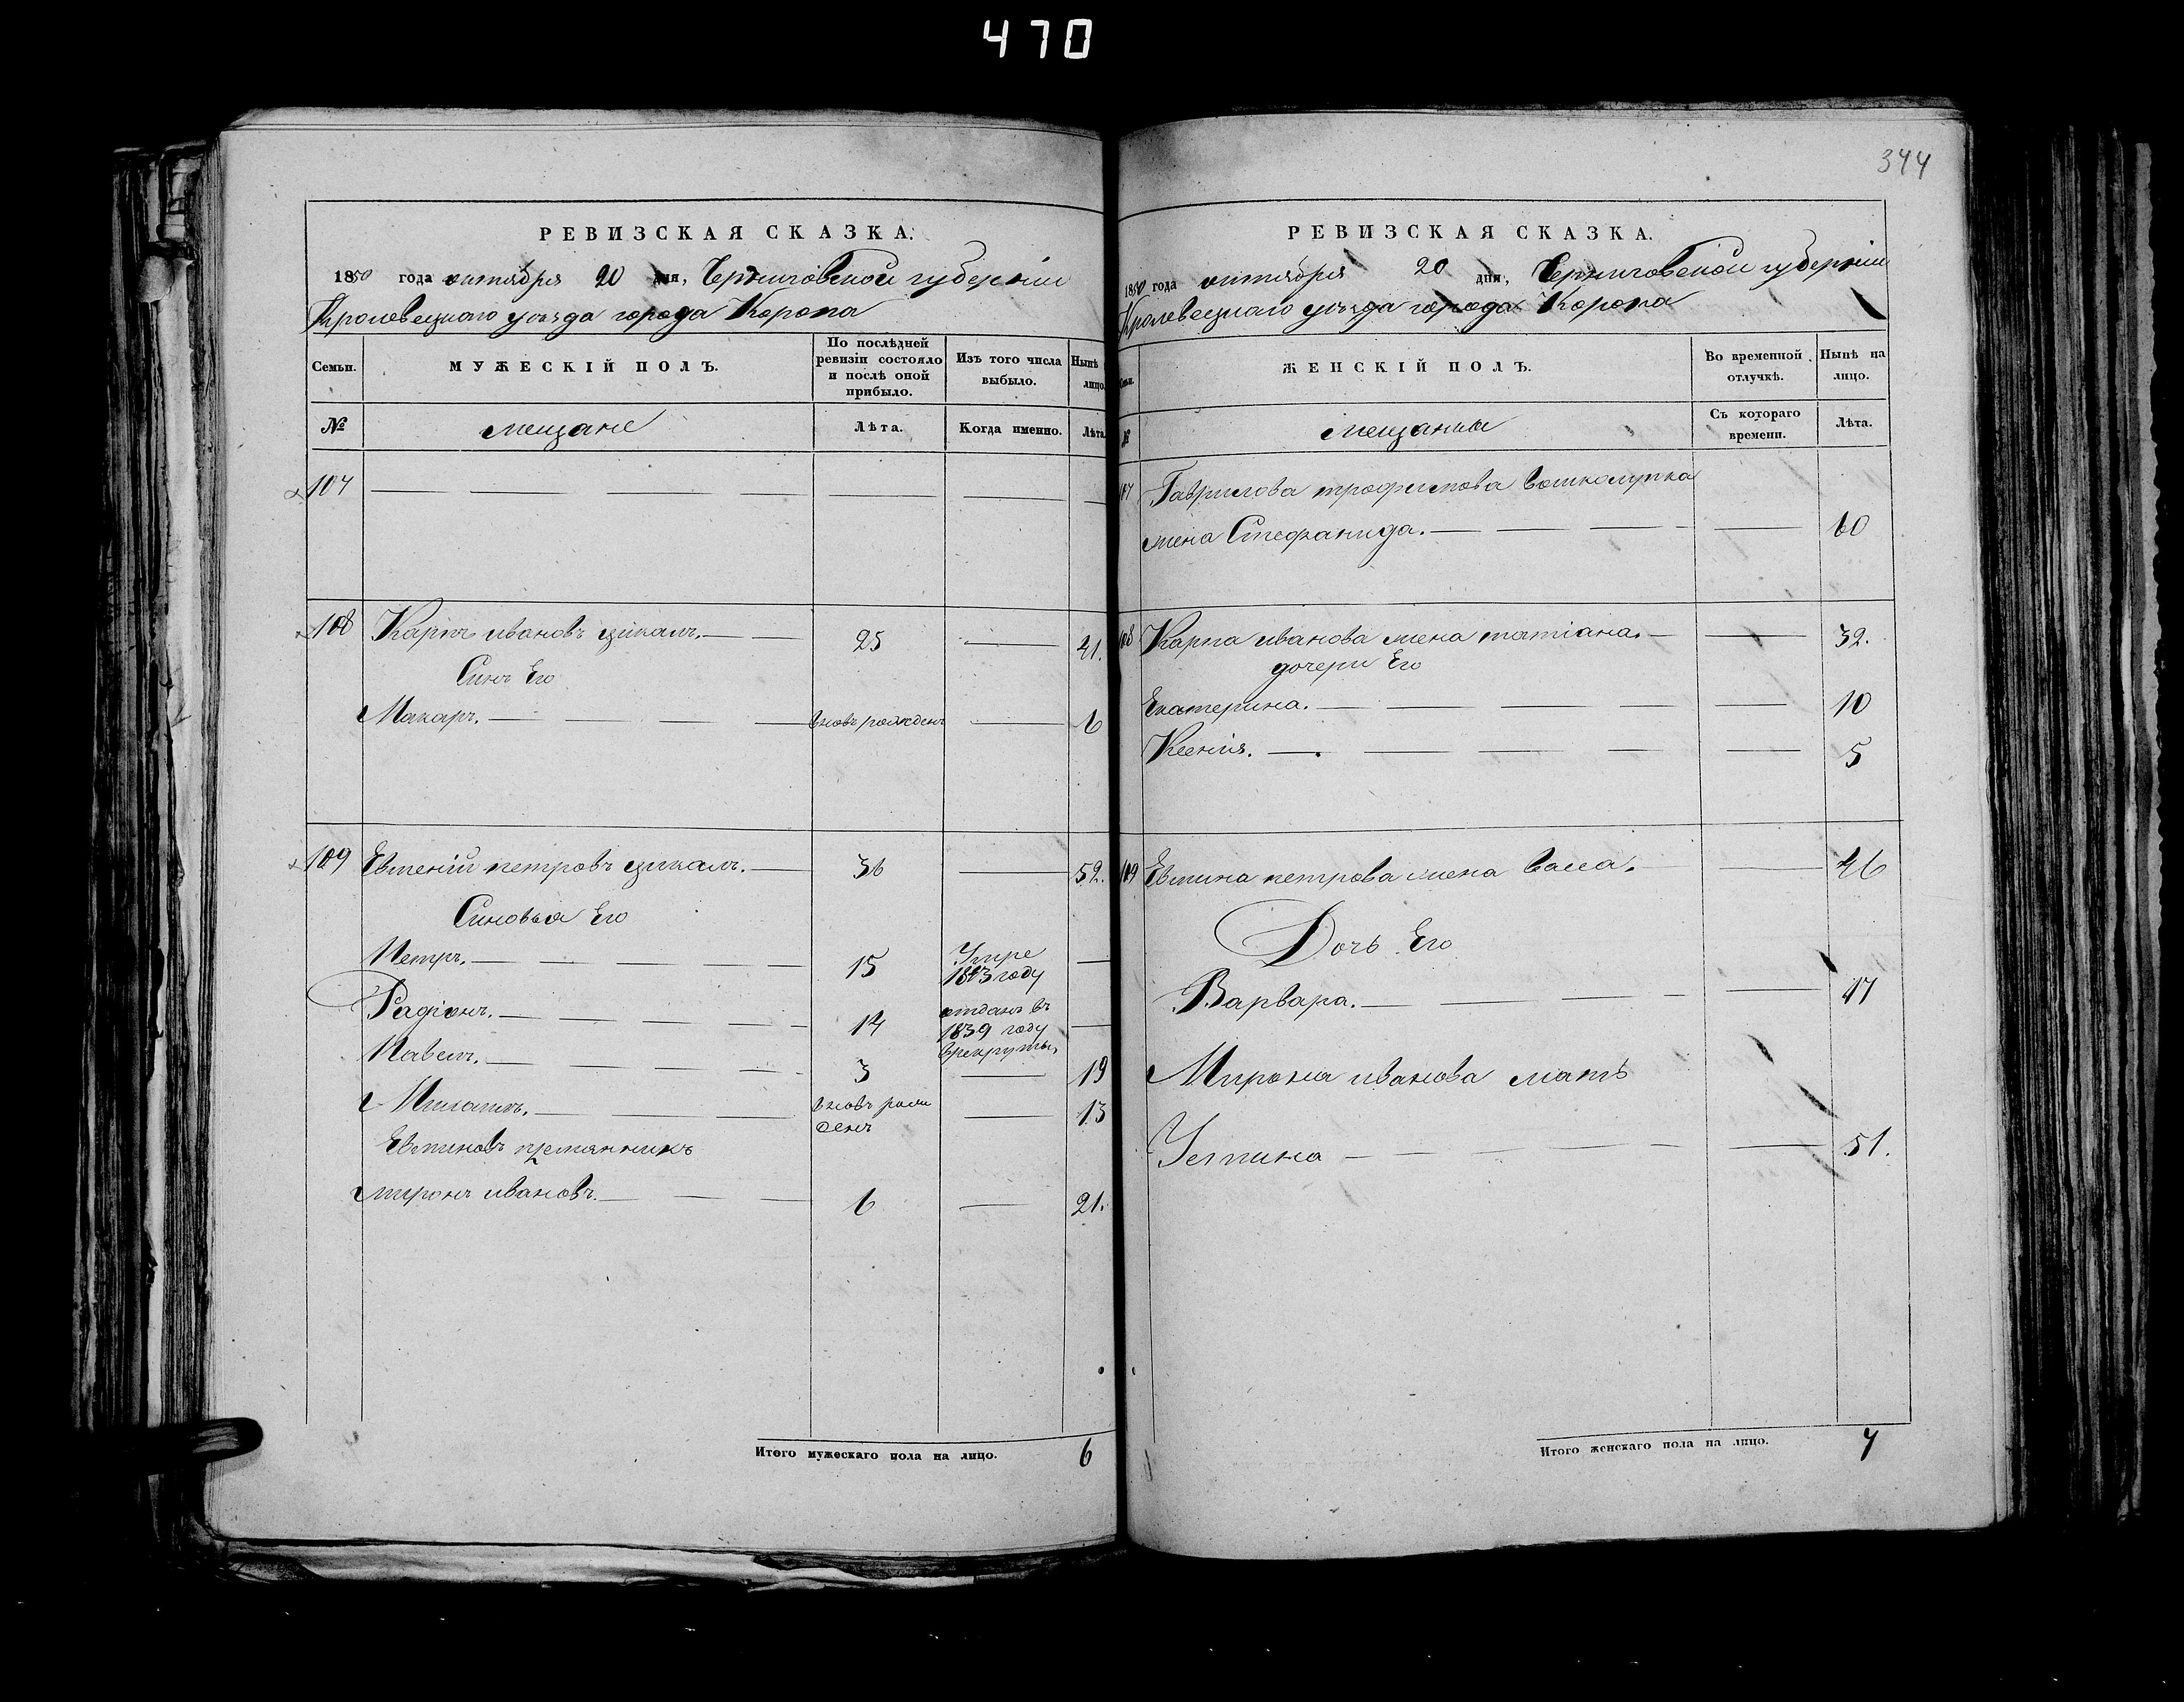 470
344
РЕВИЗСКАЯ СКАЗКА.
1850 года октября 20 дня, Черниговской губерніи
Кролевецкаго уѣзда города Коропа
Семьи.
МУЖЕСКІЙ ПОЛЪ.
По послѣдней ревизіи состояло и послѣ оной прибыло.
Изъ того числа выбыло.
Нынѣ лицо.
№
мещане
Лѣта.
Когда именно.
Лѣта.
107
108 Карпъ ивановъ цикалъ. 25 41.
Синъ Его
Макаръ. вновь рожденъ 6
109 Евтеній петровъ цикалъ. 36 52.
Синовья Его
Петръ. 15 Умре 1843 году
Радіонъ. 14 отданъ въ 1839 году врекруты,
Павелъ. 3 19
Михаилъ. вновь рожденъ 13
Евтиновъ племянникъ
миронъ ивановъ. 6 21.
Итого мужескаго пола на лицо. 6
РЕВИЗСКАЯ СКАЗКА.
1850 года октября 20 дня, Черниговской губерніи
Кролевецкаго уѣзда города Коропа
Семьи.
ЖЕНСКІЙ ПОЛЪ.
Во временной отлучкѣ.
Нынѣ на лицо.
№
мещанки
Съ котораго времени.
Лѣта.
107 Гаврилова трофимова
жена Стефанида. 60
108 Карпа иванова жена татіана. 32.
дочери Его
Екатерина. 10
Ксенія. 5
109 Евтина петрова жена 46
Дочь Его
Варвара. 17
Мирона иванова мать
Устина 51.
Итого женскаго пола на лицо. 7